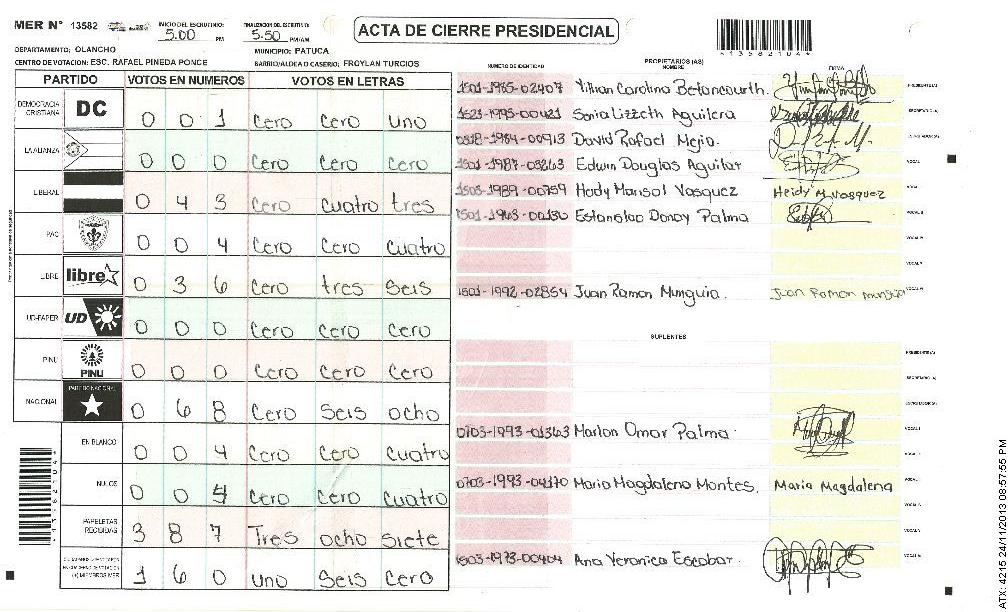 MER N° 13582 INICIO DEL ESCRUTINIO: 5:00 PM FINALIZACION DEL ESCRUTINIO: 5:50 PM/AM.
ACTA DE CIERRE PRESIDENCIAL
DEPARTAMENTO: OLANCHO MUNICIPIO: PATUCA
CENTRO DE VOTACION: ESC. RAFAEL PINEDA PONCE BARRIO/ALDEA O CASERIO: FROYLAN TURCIOS
PARTIDO VOTOS EN NUMEROS VOTOS EN LETRAS
DEMOCRACIA CRISTIANA DC 0 0 1 Cero Cero uno
LA ALIANZA 0 0 0 Cero Cero Cero
LIBERAL 0 4 3 Cero cuatro tres
PAC 0 0 4 Cero Cero cuatro
LIBRE libre 0 3 6 Cero tres seis
UD-FAPER UD 0 0 0 Cero Cero Cero
PINU PINU 0 0 0 Cero Cero Cero
NACIONAL PARTIDO NACIONAL 0 6 8 Cero Seis ocho
EN BLANCO 0 0 4 Cero Cero cuatro
NULOS 0 0 4 Cero Cero cuatro
PAPELETAS RECIBIDAS 3 8 7 Tres ocho siete
(+) MIEMBROS MER 1 6 0 uno Seis Cero
PROPIETARIOS (AS)
NUMERO DE IDENTIDAD NOMBRE FIRMA
1501-1985-02407 Yilian Carolina Betancourth. PRESIDENTE(A)
1523-1993-00421 Sonia Lizzeth Aguilera SECRETARIO(A)
0818-1984-00913 David Rafael Mejia. ESCRUTADOR(A)
1501-1987-03263 Edwin Douglas Aguilar VOCAL I
1503-1989-00759 Heidy Marisol Vasquez Heidy M Vasquez
1501-1963-00130 Estanolao Donay Palma
1501-1992-02854 Juan Ramon Munguia. Juan Ramon munguia
SUPLENTES
PRESIDENTE(A)
SECRETARIO(A)
ESCRUTADOR(A)
0703-1993-01363 Marlon Omar Palma. VOCAL I
0703-1993-04170 Maria Magdalena Montes. Maria Magdalena
1503-1973-00404 Ana Veronica Escobar.
*13582104*
ATX: 4215 24/11/2013 08:57:55 PM